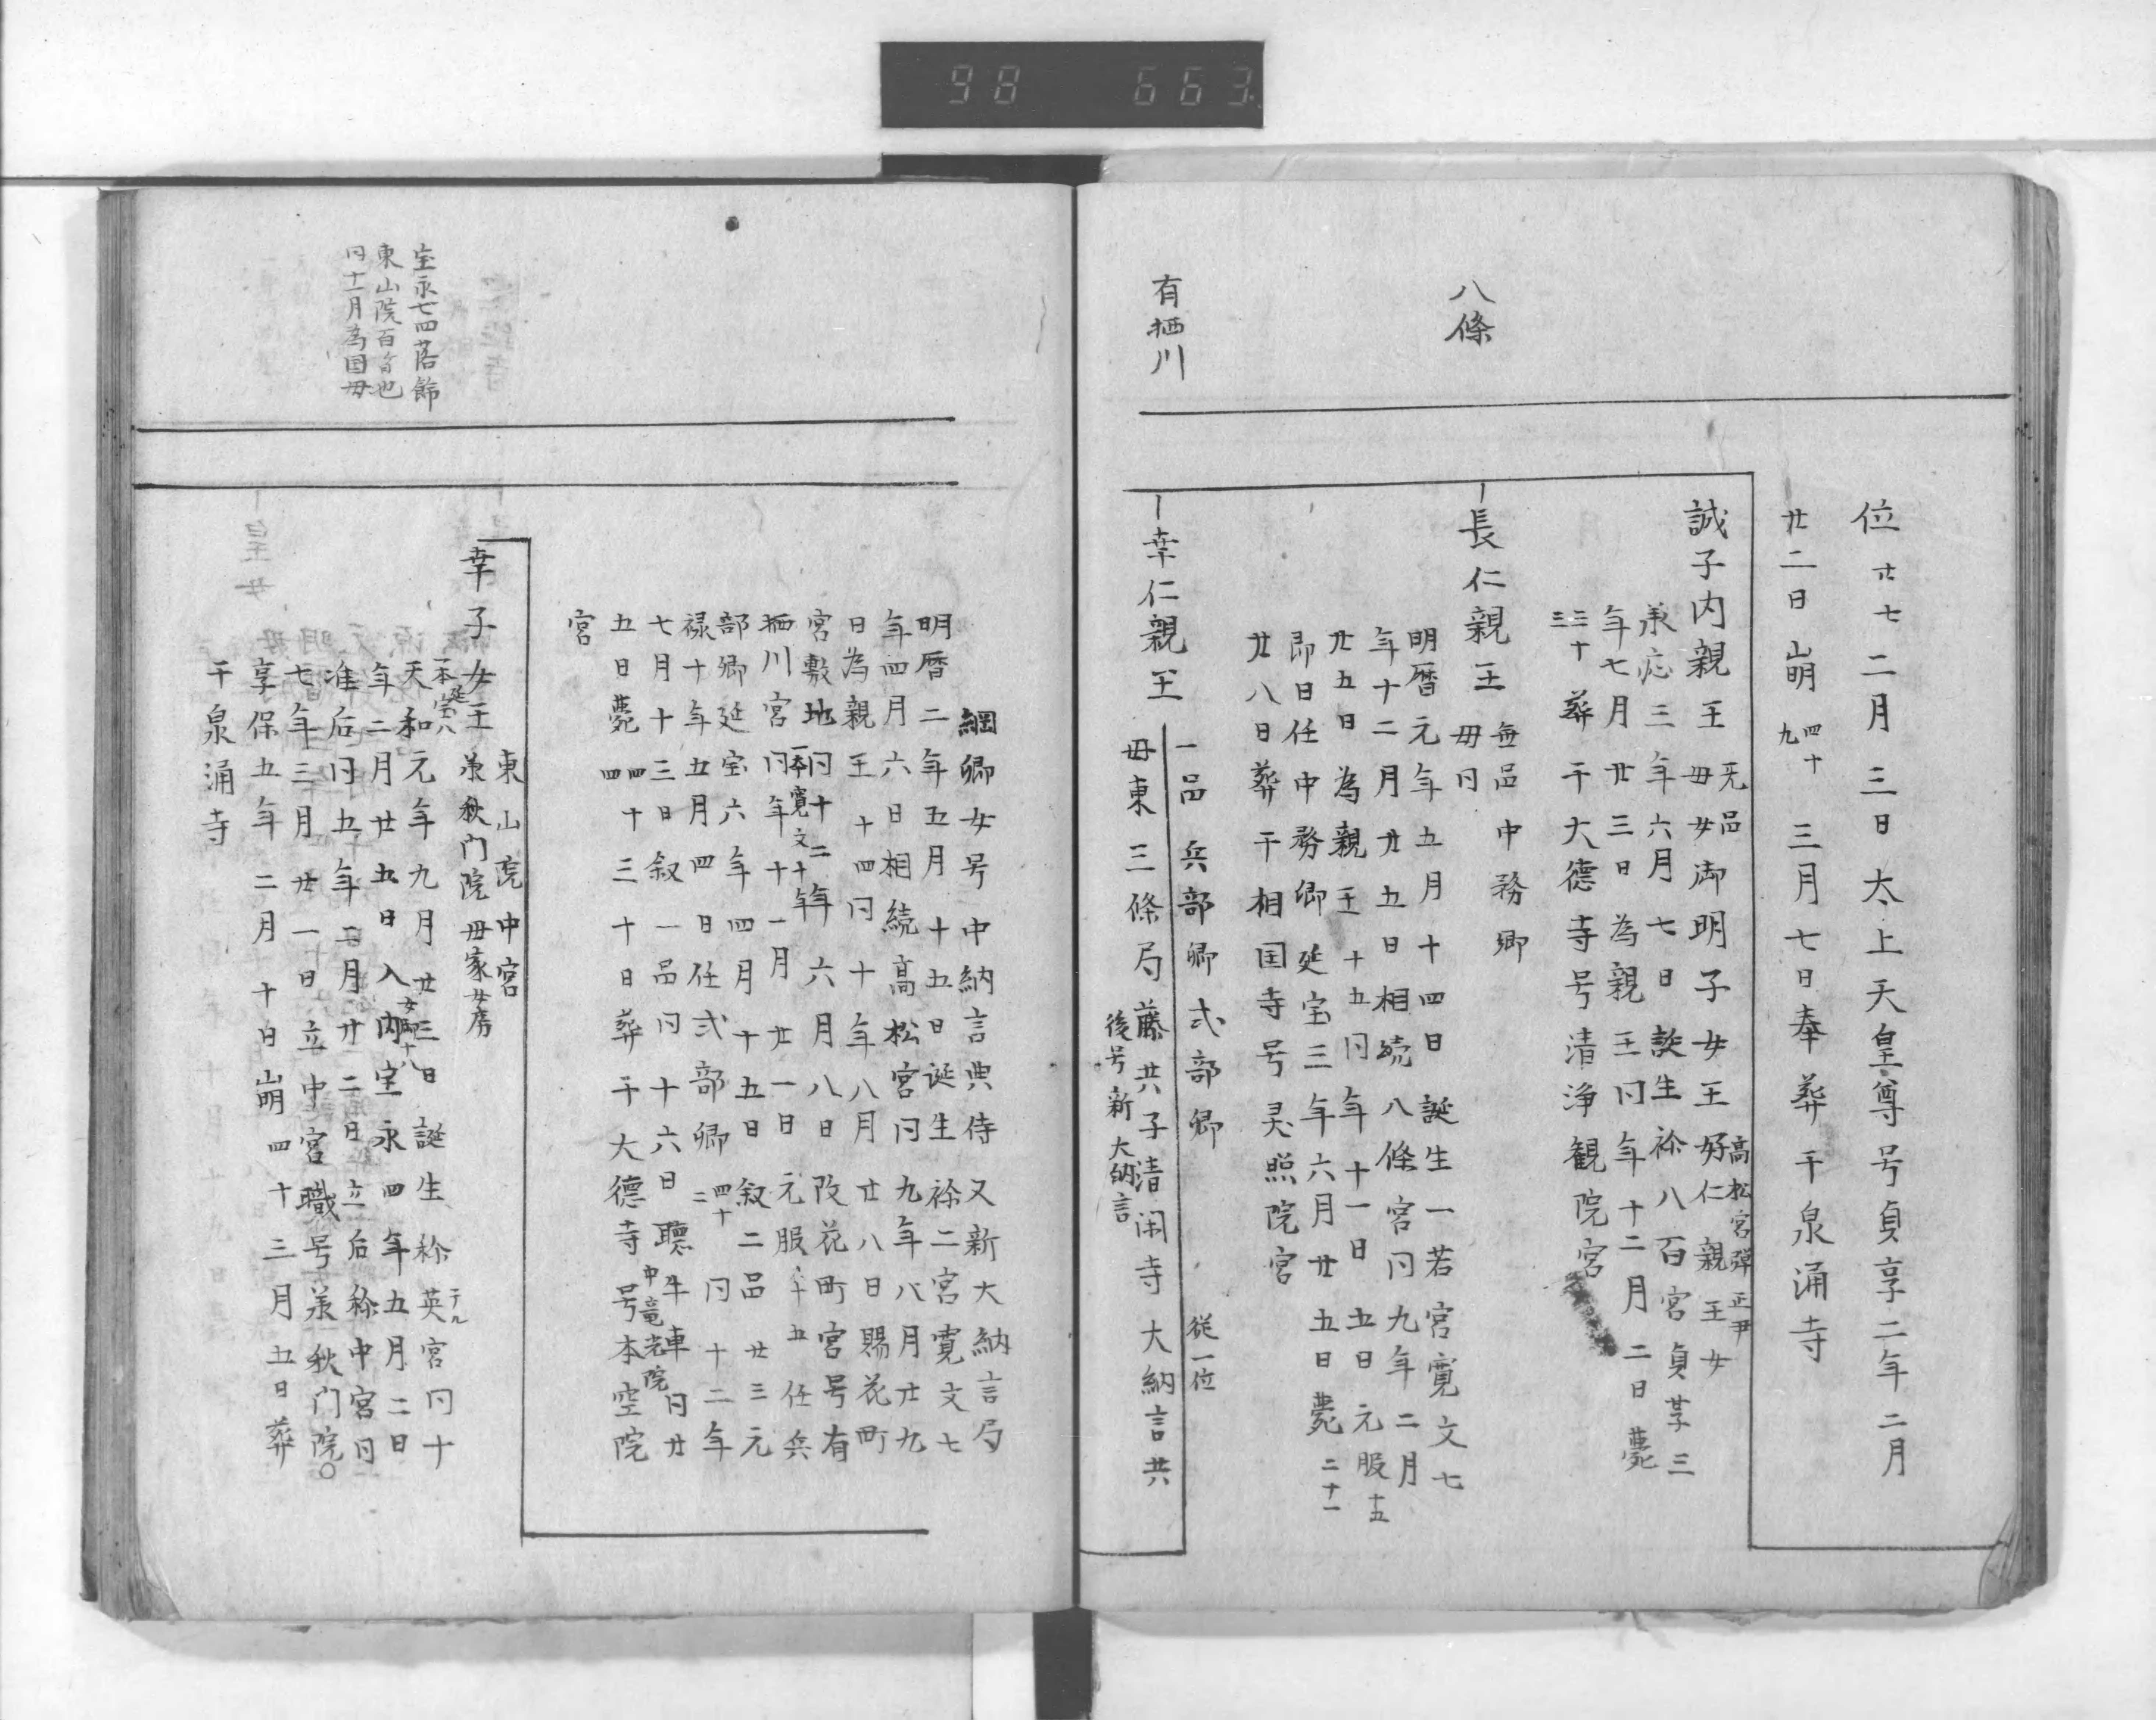 98 663
八條
有栖川
位廿七二月三日太上天皇尊号貞享二年二月
廿二日崩四十九三月七日奉葬于泉涌寺
誠子内親王
无品
母女御明子女王
高松宮弾正尹
好仁親王女
承応三年六月七日誕生称八百宮貞享三
年七月廿三日為親王同年十二月二日薨
三十三
葬于大徳寺号清浄観院宮
長仁親王
無品中務卿
母同
明暦元年五月十四日誕生一若宮寛文七
年十二月廿五日相続八條宮同九年二月
廿五日為親王十五同年十一日五日元服十五
即日任中務卿延宝三年六月廿五日薨二十一
廿八日葬于相国寺号灵照院宮
幸仁親王
一品兵部卿式部卿
従一位
母東三條局藤共子清閑寺大納言共
後号新大納言
綱卿女号中納言典侍又新大納言局
明暦二年五月十五日誕生称二宮寛文七
年四月六日相続高松宮同九年八月廿九
日為親王十四同十年八月廿八日賜花町
宮敷地同十二年六月八日改花町宮号有
一本寛文十
栖川宮同年十一月廿一日元服十五任兵
部卿延宝六年四月十五日叙二品廿三元
禄十年五月四日任式部卿四十二同十二年
七月十三日叙一品同十六日聴牛車同廿
五日薨四十四十三十日葬于大徳寺号本空院
中竜光院
宮
宝永七四落飾
東山院百首也
同十一月為国母
幸子女王
東山院中宮
承秋门院母家女房
一本延宝八
天和元年九月廿三日誕生称英宮同十
年二月廿五日入内宝永四年五月二日
女御十八
准后同五年二月廿二日立后称中宮同
七年三月廿一日立中宮職号承秋门院〇
享保五年二月十日崩四十三月五日葬
于泉涌寺